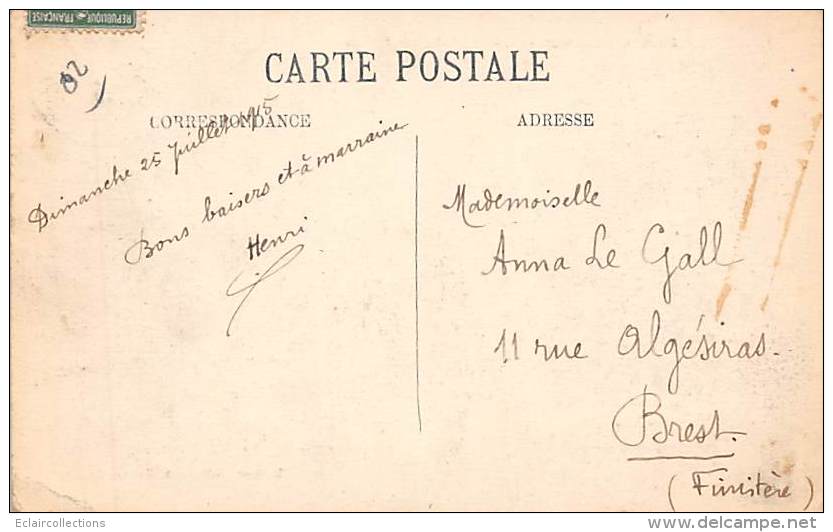 REPUBLIQUE FRANÇAISE
82
CARTE POSTALE
CORRESPONDANCE
ADRESSE
Dimanche 25 Juillet 1915
Bons baisers et à marraine
Henri
Mademoiselle
Anna Le Gall
11 rue Algésiras.
Brest.
(Finistère)
Eclaircollections
delcampe.net